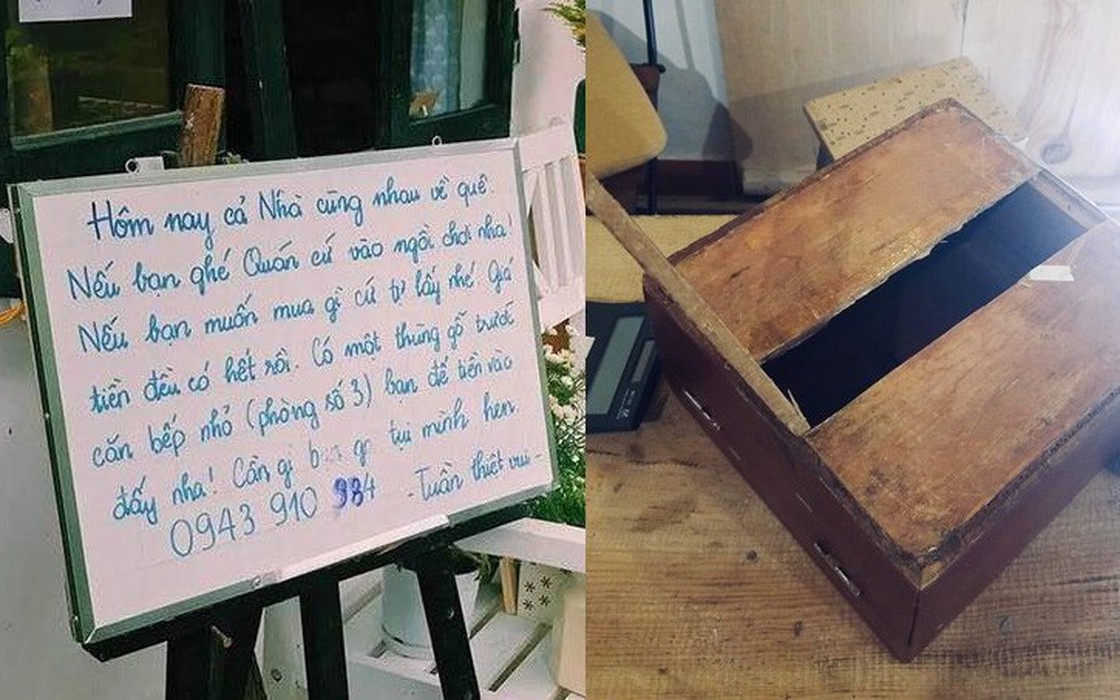 Hôm nay cả Nhà cùng nhau về quê.
Nếu bạn ghé Quán cứ vào ngồi chơi nha!
Nếu bạn muốn mua gì cứ tự lấy nhé. Giá
tiền đều có hết rồi. Có một thùng gỗ trước
căn bếp nhỏ (phòng số 3) bạn để tiền vào
đấy nha! Cần gì bạn gọi tụi mình hen.
0943 910 984 - Tuần thiệt vui -